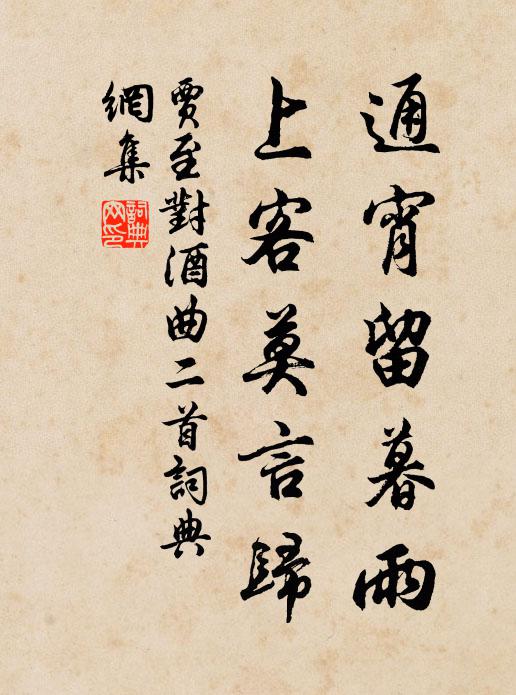 通宵留暮雨
上客莫言歸
賈至對酒曲二首詞典
網集
詞典
网印